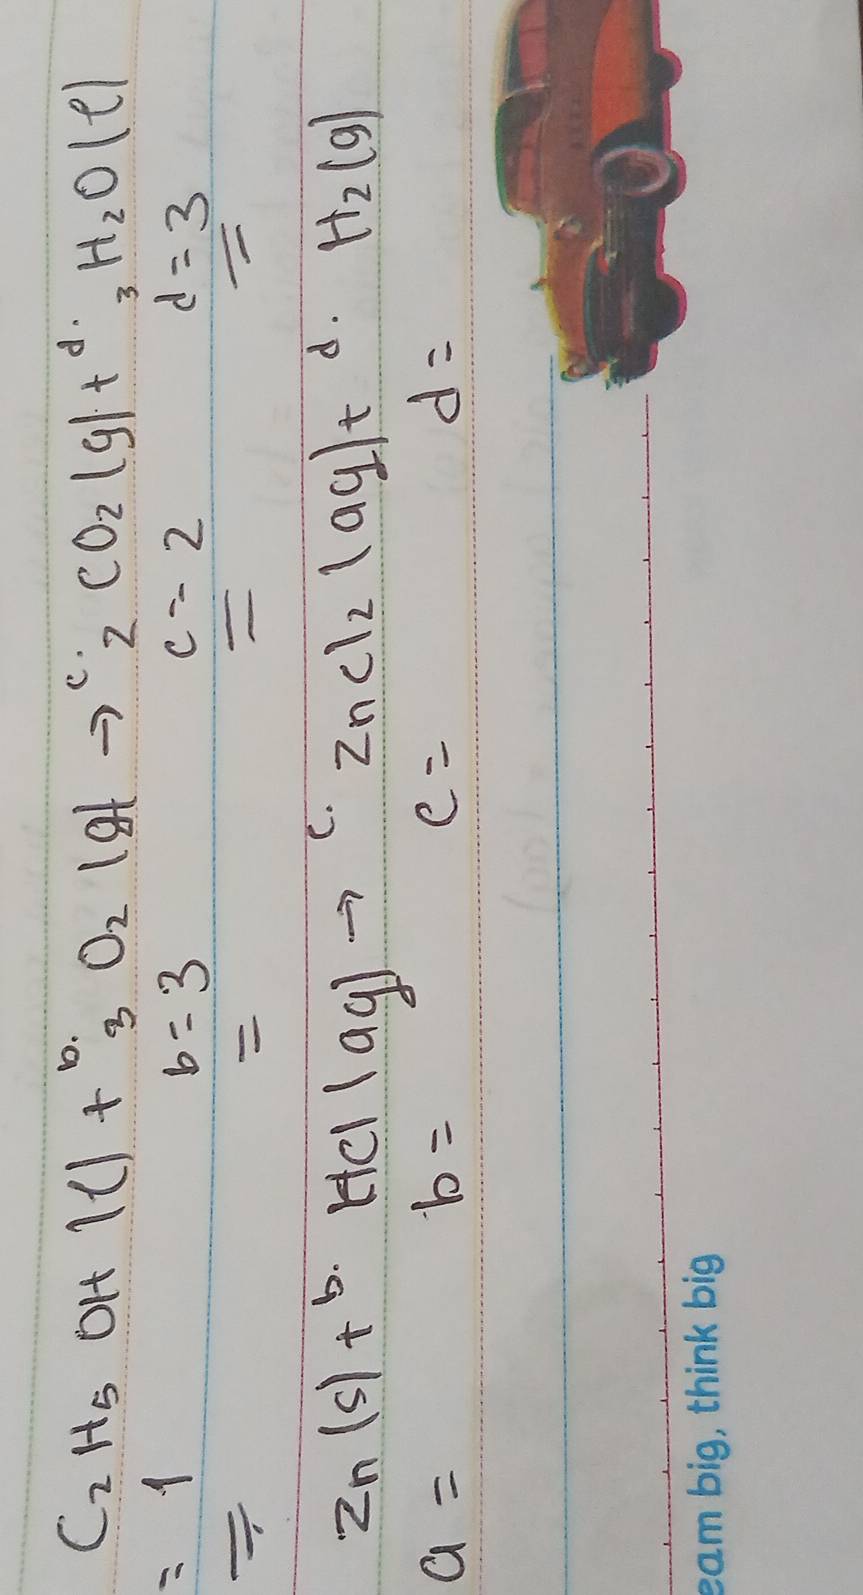 C₂H₅OH(l) + ᵇ·3 O₂(g) → ᶜ·2 CO₂(g) + ᵈ·3 H₂O(l)
= 1 b = 3 c = 2 d = 3
Zn(s) + ᵇ· HCl(aq) → ᶜ· ZnCl₂(aq) + ᵈ· H₂(g)
a = b = c = d =
eam big, think big